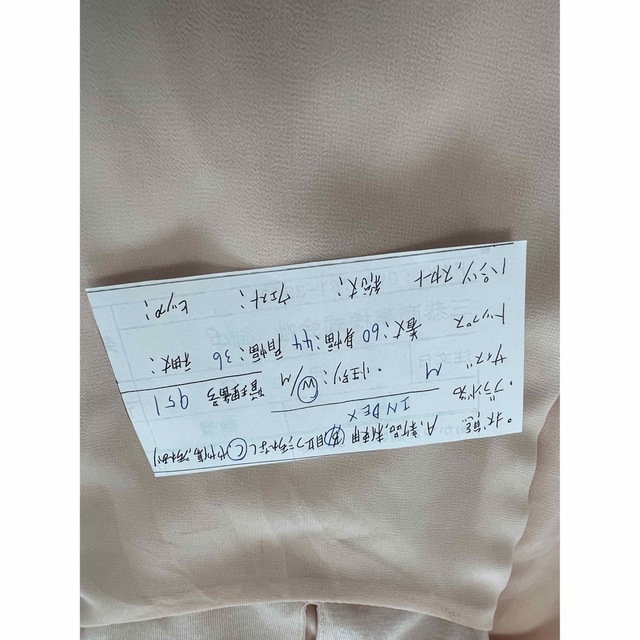 ・状態 A,新品,未使用 B,目立つ汚れなし C,やや傷,汚れあり
・ブランド名 INDEX
サイズ M ・性別: W/M 管理番号 951
トップス 着丈:60 身幅:44 肩幅:36 袖丈:
パンツ,スカート 総丈: ウエスト: ヒップ: